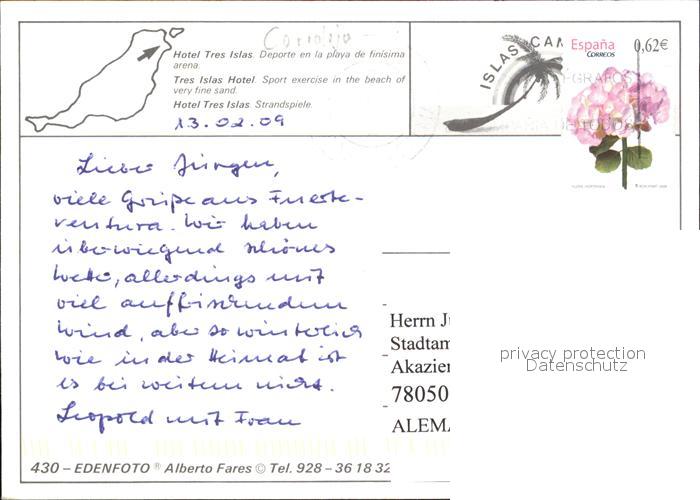 Corralejo
Hotel Tres Islas. Deporte en la playa de finísima
arena.
Tres Islas Hotel. Sport exercise in the beach of
very fine sand.
Hotel Tres Islas Strandspiele.
13.02.09
ISLAS CAN
España
CORREOS
0,62€
Lieber Jürgen,
viele Grüße aus Fuerte-
ventura. Wir haben
überwiegend schönes
Wetter, allerdings mit
viel auffrischendem
Wind, aber so winterlich
wie in der Heimat ist
es bei weitem nicht.
Leopold mit Frau
Herrn J
Stadtam
Akazien
78050
ALEMA
privacy protection
Datenschutz
430 – EDENFOTO ® Alberto Fares © Tel. 928 – 36 18 32